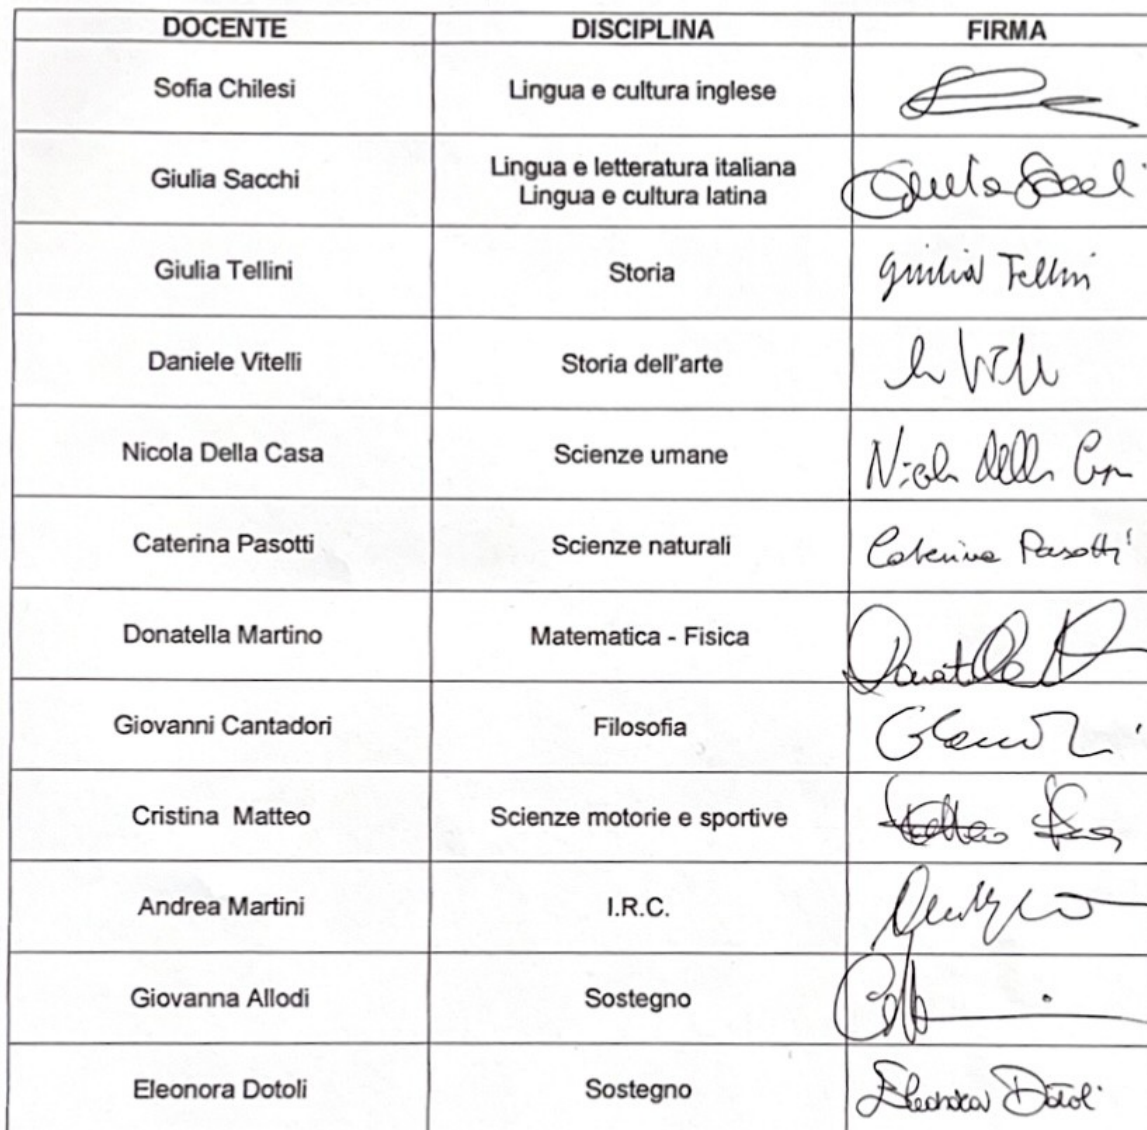 DOCENTE DISCIPLINA FIRMA
Sofia Chilesi Lingua e cultura inglese
Giulia Sacchi Lingua e letteratura italiana
Lingua e cultura latina
Giulia Tellini Storia Giulia Tellini
Daniele Vitelli Storia dell'arte
Nicola Della Casa Scienze umane Nicola Della Casa
Caterina Pasotti Scienze naturali Caterina Pasotti
Donatella Martino Matematica - Fisica Donatella
Giovanni Cantadori Filosofia
Cristina Matteo Scienze motorie e sportive Matteo
Andrea Martini I.R.C.
Giovanna Allodi Sostegno
Eleonora Dotoli Sostegno Eleonora Dotoli